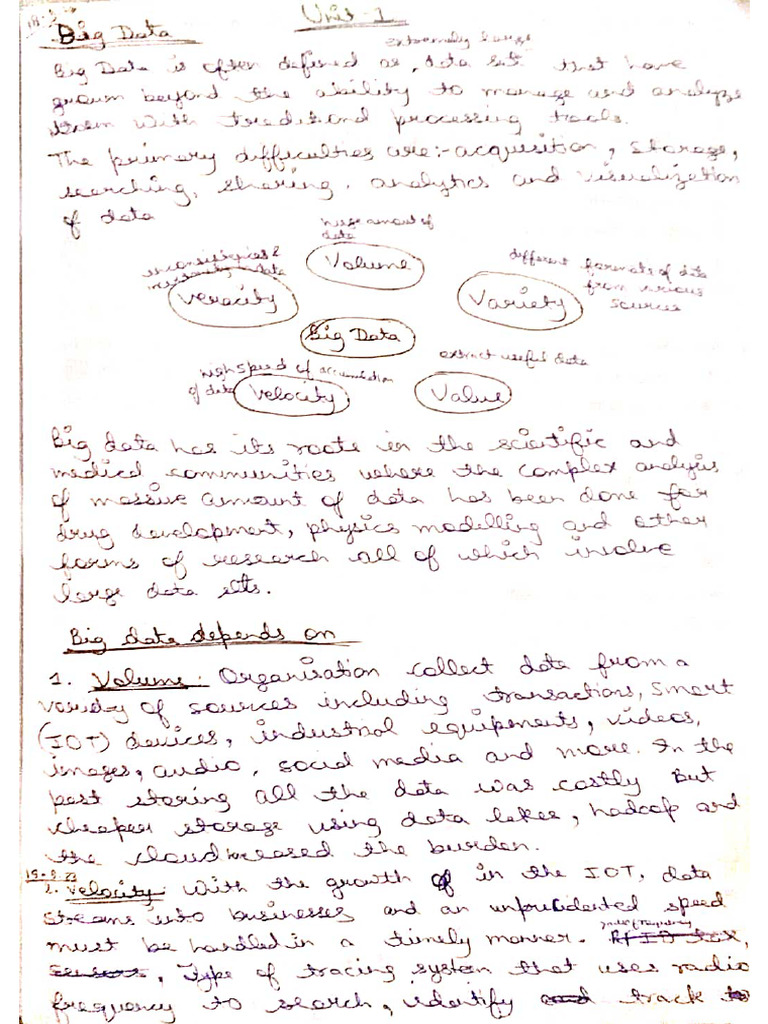 Unit-1
Big Data
extremely large
Big Data is often defined as, data set that have
grown beyond the ability to manage and analyze
them with traditional processing tools.
The primary difficulties are:- acquisition, storage,
searching, sharing, analytics and visualization
of data
huge amount of
data
Volume
inconsistencies &
uncertainty in data
Veracity
different formats of data
from various
sources
Variety
Big Data
high speed of accumulation
of data
Velocity
extract useful data
Value
Big data has its roots in the scientific and
medical communities where the complex analysis
of massive amount of data has been done for
drug development, physics modelling and other
forms of research all of which involve
large data sets.
Big data depends on
1. Volume: Organisation collect data from a
variety of sources including transactions, smart
(IOT) devices, industrial equipments, videos,
images, audio, social media and more. In the
past storing all the data was costly But
cheaper storage using data lakes, hadoop and
the cloud increased the burden.
2. Velocity: With the growth of in the IOT, data
streams into businesses and an unprecidented speed
must be handled in a timely manner.
, Type of tracing system that uses radio
frequency to search, identify and track to